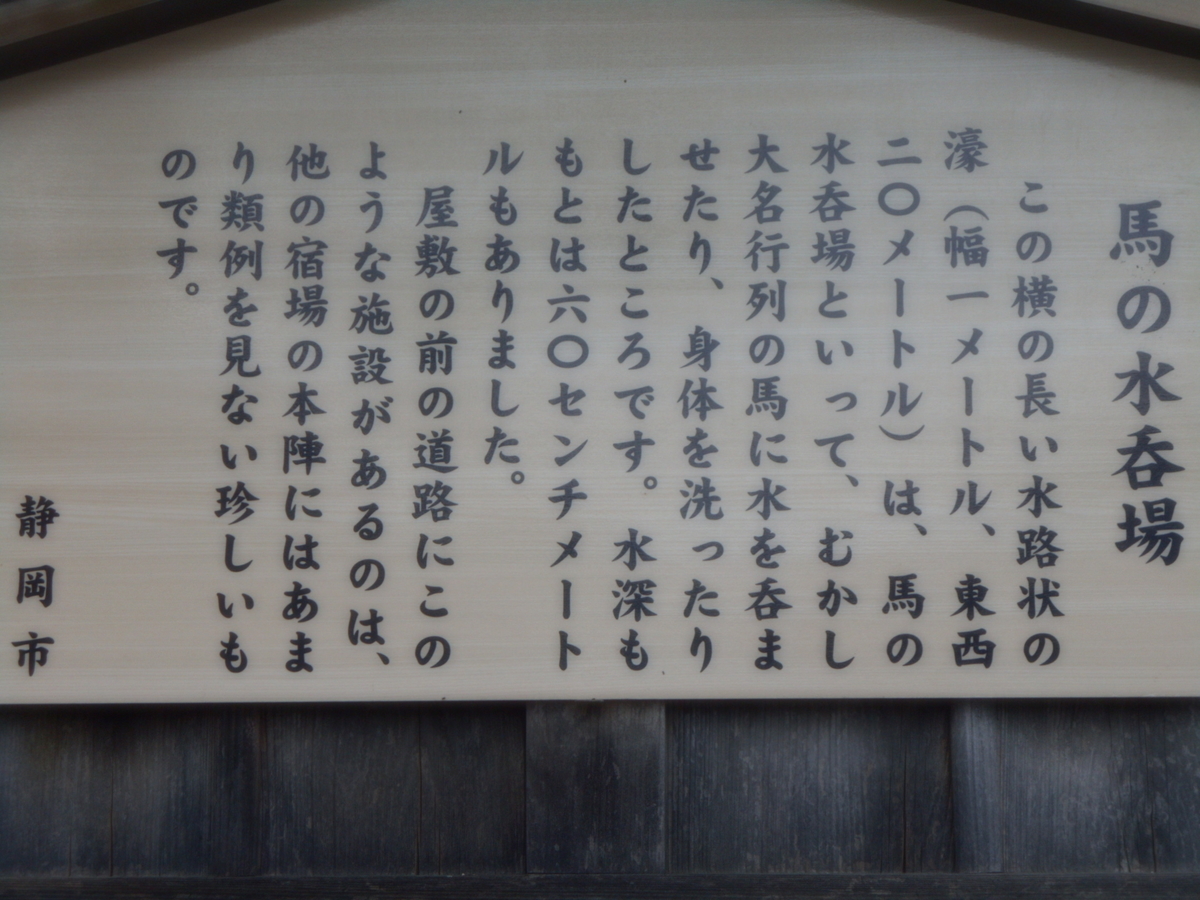 馬の水呑場
この横の長い水路状の
濠（幅一メートル、東西
二〇メートル）は、馬の
水呑場といって、むかし
大名行列の馬に水を呑ま
せたり、身体を洗ったり
したところです。水深も
もとは六〇センチメート
ルもありました。
屋敷の前の道路にこの
ような施設があるのは、
他の宿場の本陣にはあま
り類例を見ない珍しいも
のです。
静岡市